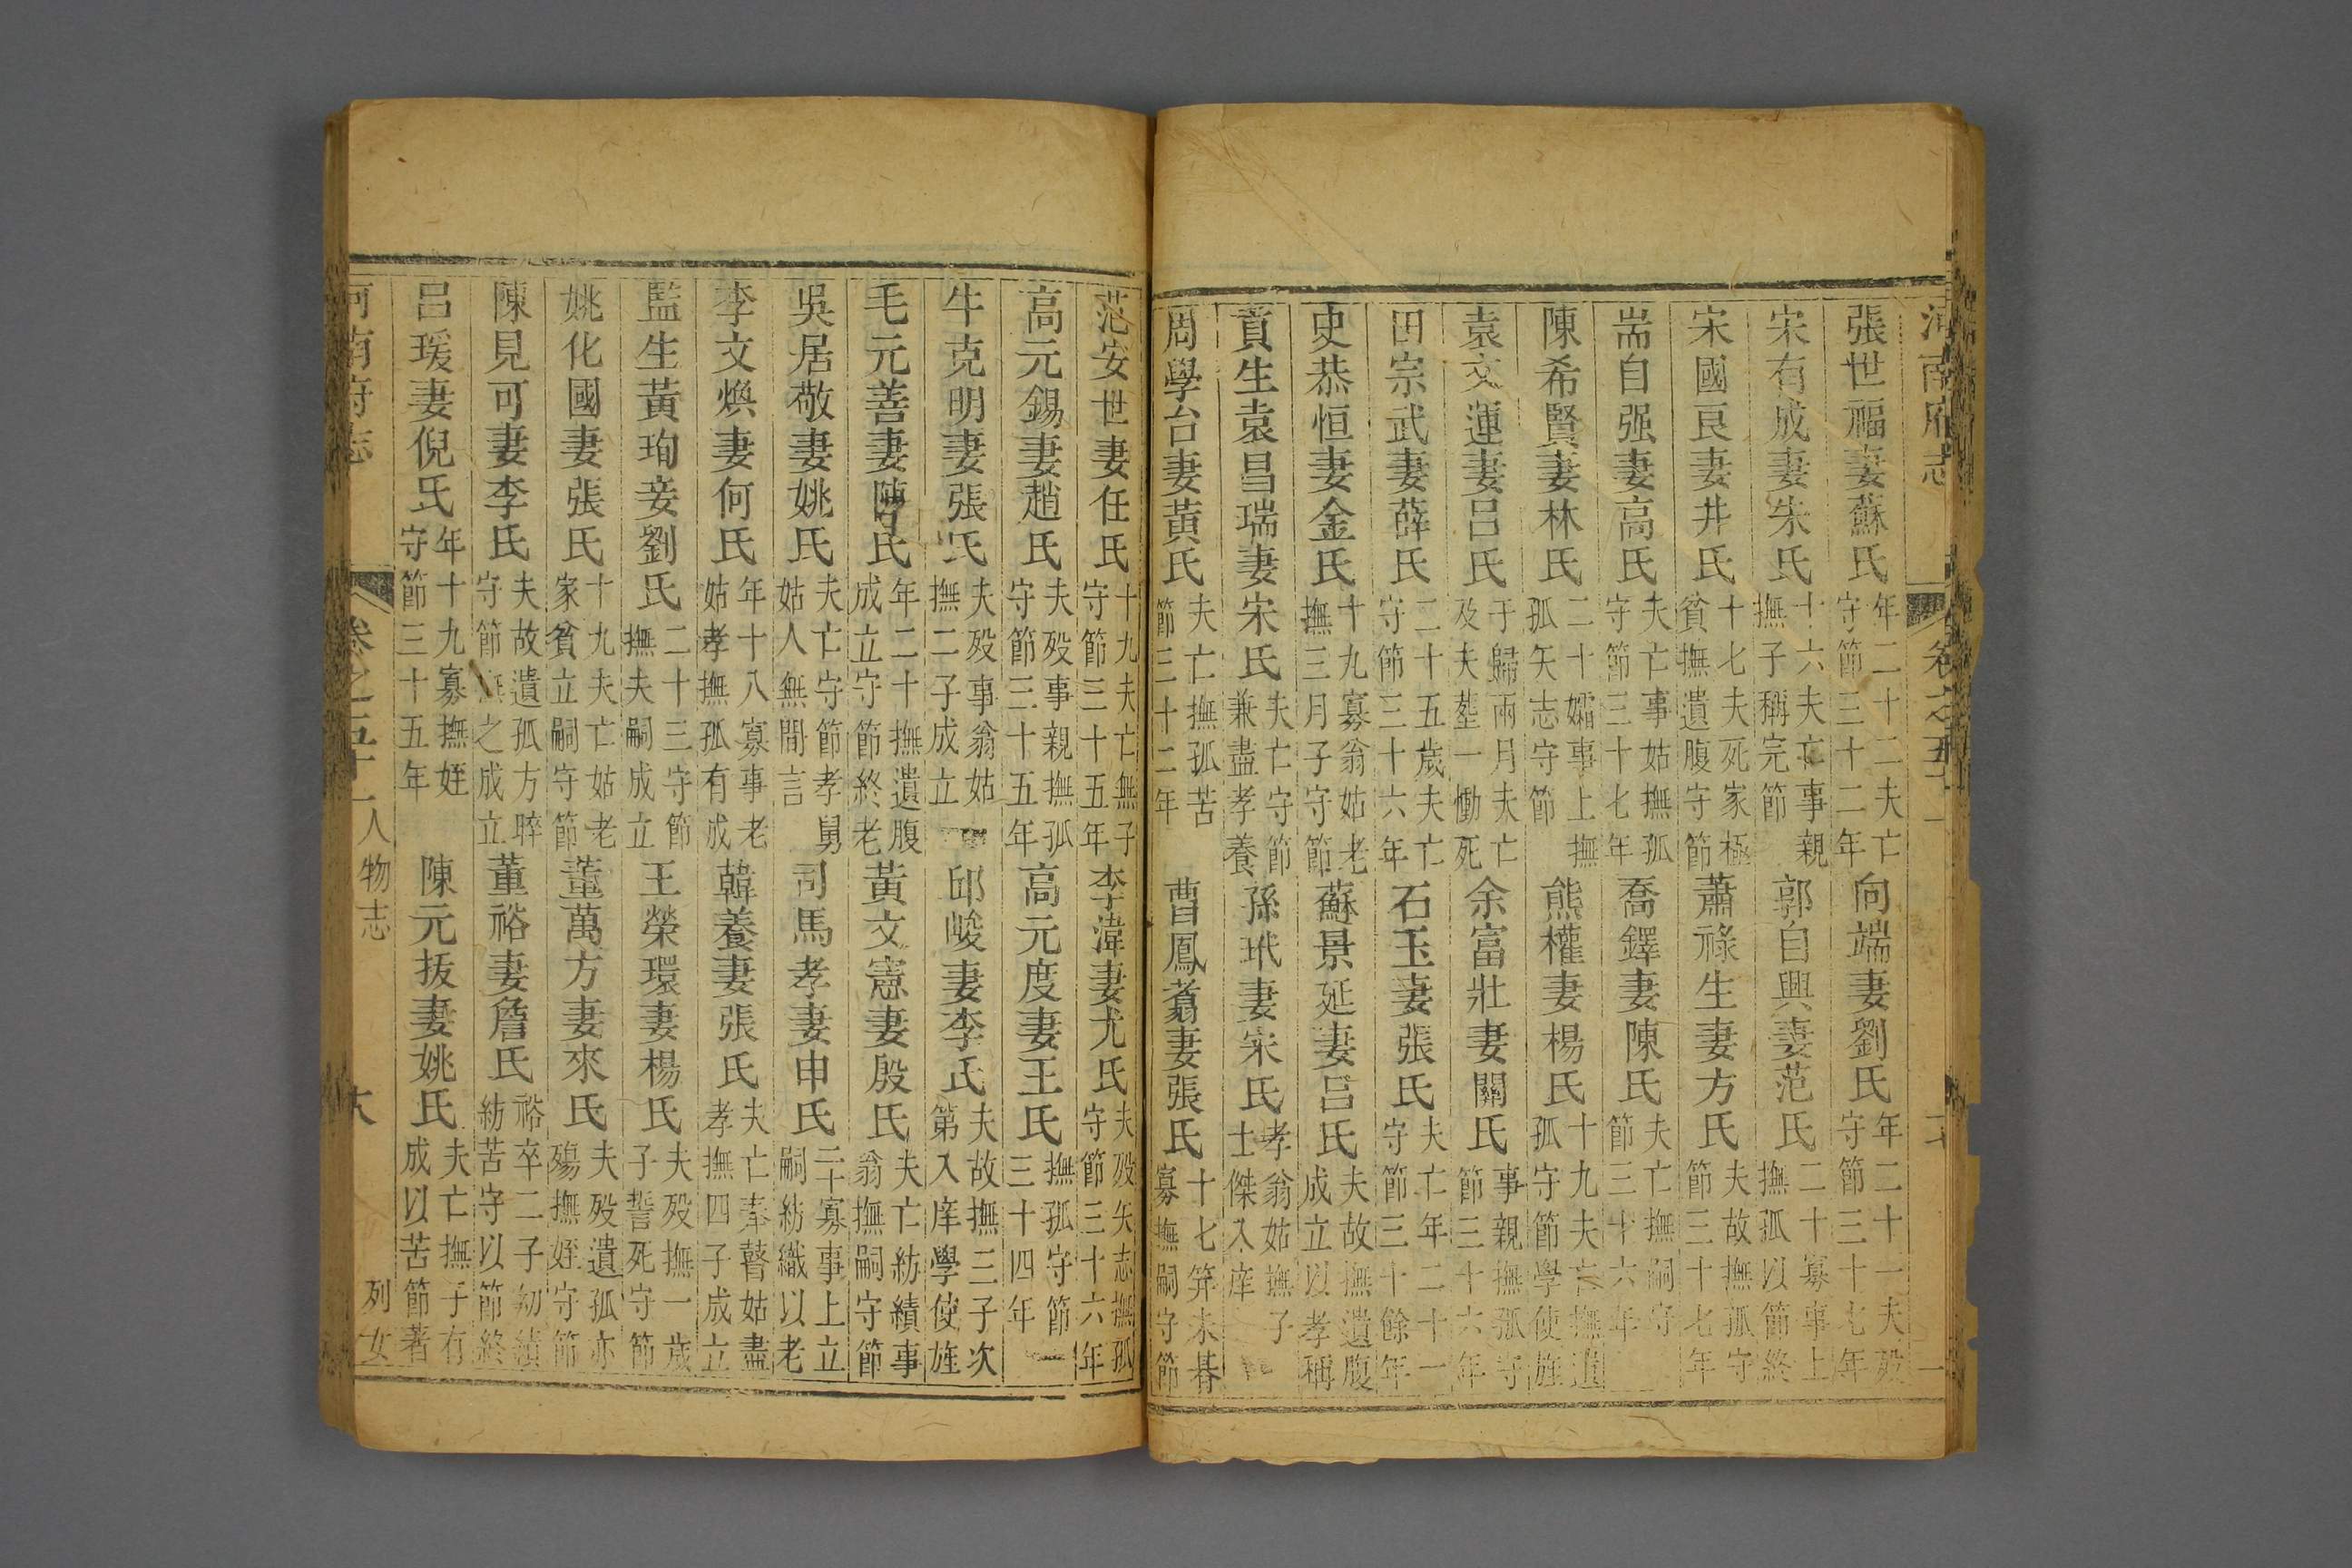 河南府志
張世福妻蘇氏 年二十二夫亡守節三十二年 向端妻劉氏 年二十一夫歿守節三十七年
宋有成妻朱氏 十六夫亡事親撫子稱完節 郭自興妻范氏 二十寡事上撫孤以節終
宋國良妻井氏 十七夫死家極貧撫遺腹守節 蕭祿生妻方氏 夫故撫孤守節三十七年
耑自强妻高氏 夫亡事姑撫孤守節三十七年 喬鐸妻陳氏 夫亡撫嗣守節三十六年
陳希賢妻林氏 二十孀事上撫孤矢志守節 熊權妻楊氏 十九夫亡撫遺孤守節學使旌
袁文運妻呂氏 于歸兩月夫亡及夫塟一慟死 余富壯妻關氏 事親撫孤守節三十六年
田宗武妻薛氏 二十五歲夫亡守節三十六年 石玉妻張氏 夫亡年二十一守節三十餘年
史恭恒妻金氏 十九寡翁姑老撫三月子守節 蘇景延妻呂氏 夫故撫遺腹成立以孝稱
貢生袁昌瑞妻宋氏 夫亡守節兼盡孝養 孫玳妻宋氏 孝翁姑撫子士傑入庠
周學台妻黃氏 夫亡撫孤苦節三十二年 曹鳳翥妻張氏 十七笄未朞寡撫嗣守節
范安世妻任氏 十九夫亡無子守節三十五年 李湋妻尤氏 夫歿矢志撫孤守節三十六年
高元錫妻趙氏 夫歿事親撫孤守節三十五年 高元度妻王氏 撫孤守節三十四年
牛克明妻張氏 夫歿事翁姑撫二子成立 邱峻妻李氏 夫故撫三子次第入庠學使旌
毛元善妻陳氏 年二十撫遺腹成立守節終老 黃文憲妻殷氏 夫亡紡績事翁撫嗣守節
吳居敬妻姚氏 夫亡守節孝舅姑人無間言 司馬孝妻申氏 二十寡事上立嗣紡織以老
李文煥妻何氏 年十八寡事老姑孝撫孤有成 韓養妻張氏 夫亡奉瞽姑盡孝撫四子成立
監生黃珣妾劉氏 二十三守節撫夫嗣成立 王榮環妻楊氏 夫歿撫一歲子誓死守節
姚化國妻張氏 十九夫亡姑老家貧立嗣守節 董萬方妻來氏 夫歿遺孤亦殤撫姪守節
陳見可妻李氏 夫故遺孤方晬守節撫之成立 董裕妻詹氏 裕卒二子幼績紡苦守以節終
呂瑗妻倪氏 年十九寡撫姪守節三十五年 陳元抜妻姚氏 夫亡撫子有成以苦節著
河南府志 卷之五十一人物志 列女